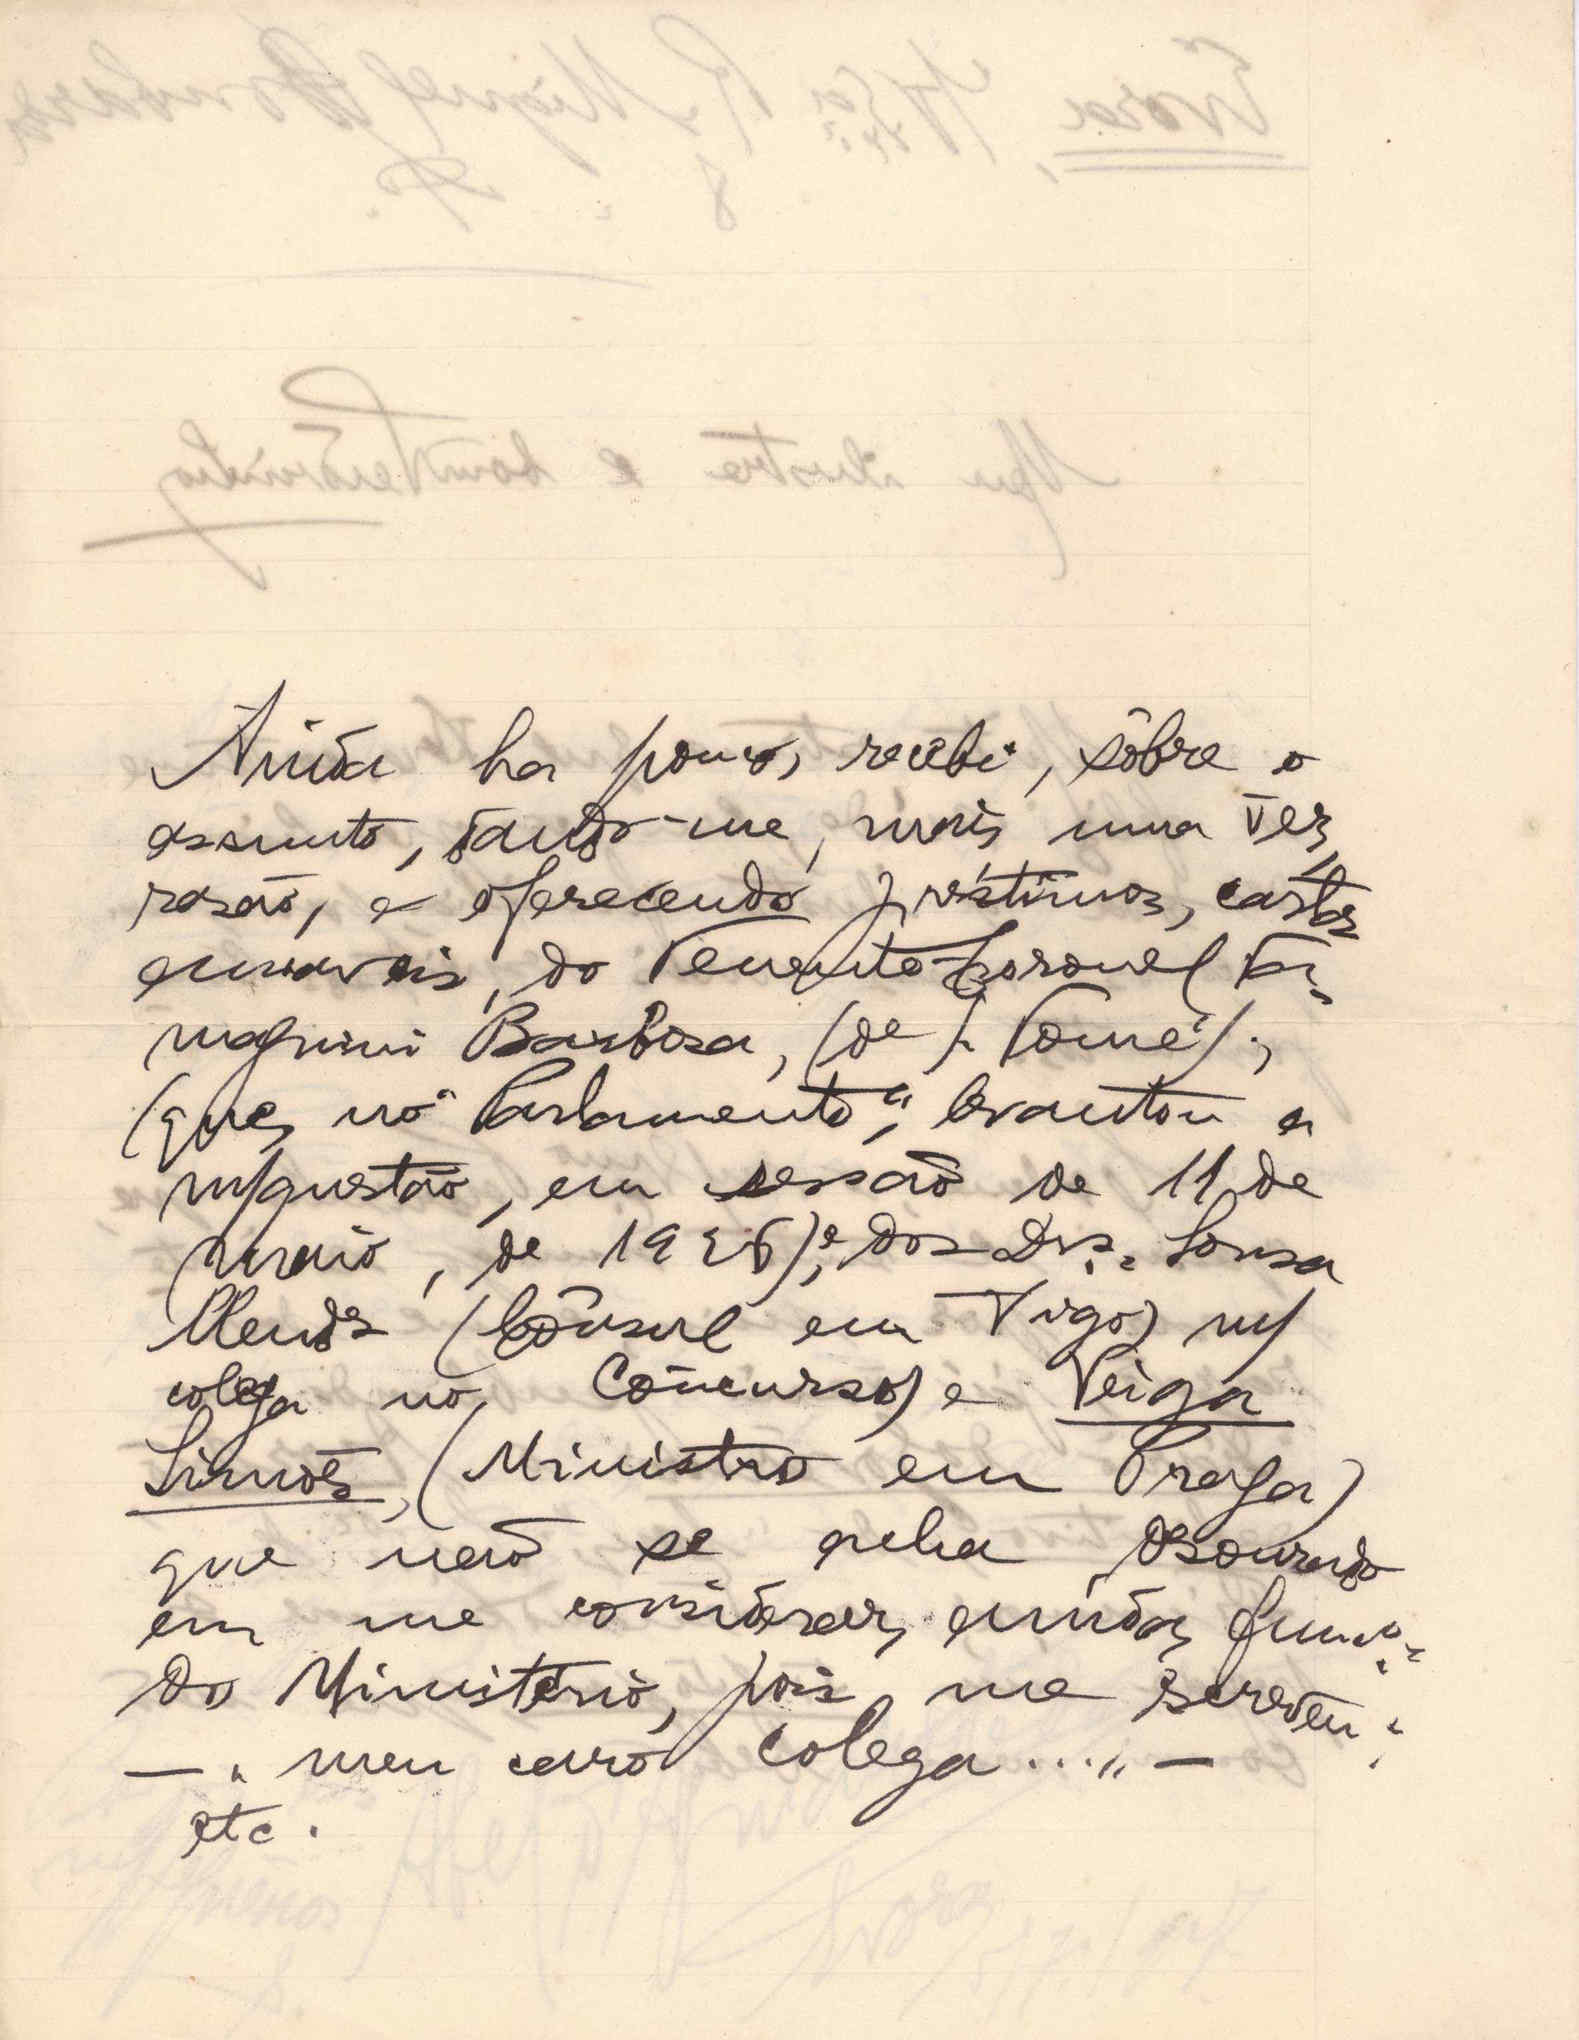 Ainda ha pouco, recebi, sôbre o
assunto, dando-me, mais uma vez,
rasão, e oferecendo préstimos, cartas
amaveis, do Tenente-Coronel Ta-
magnini Barbosa, (de S. Tomé);
(que, no "Parlamento", levantou a
m/questão, em sessão de 11 de
maio, de 1926); e dos Drs. Sousa
Mendes (Cônsul em Vigo) m/
colega no Concurso) e Veiga
Simões, (Ministro em Praga)
que não se acha desonrado
em me considerar, ainda,
do Ministério, pois me escreveu:
— "meu caro colega...." —
etc.